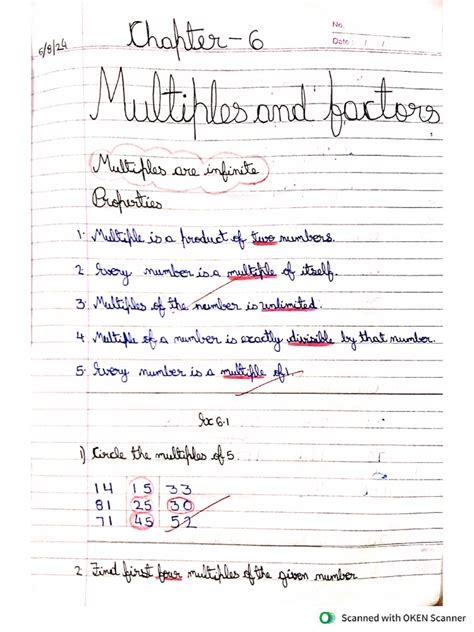 No.
Date / /
6/8/24
Chapter-6
Multiples and factors
Multiples are infinite
Properties
1. Multiple is a product of two numbers.
2. Every number is a multiple of itself.
3. Multiples of the number is unlimited.
4. Multiple of a number is exactly divisible by that number.
5. Every number is a multiple of 1.
Ex 6.1
1) Circle the multiples of 5.
14 15 33
81 25 30
71 45 52
2. Find first four multiples of the given number
Scanned with OKEN Scanner